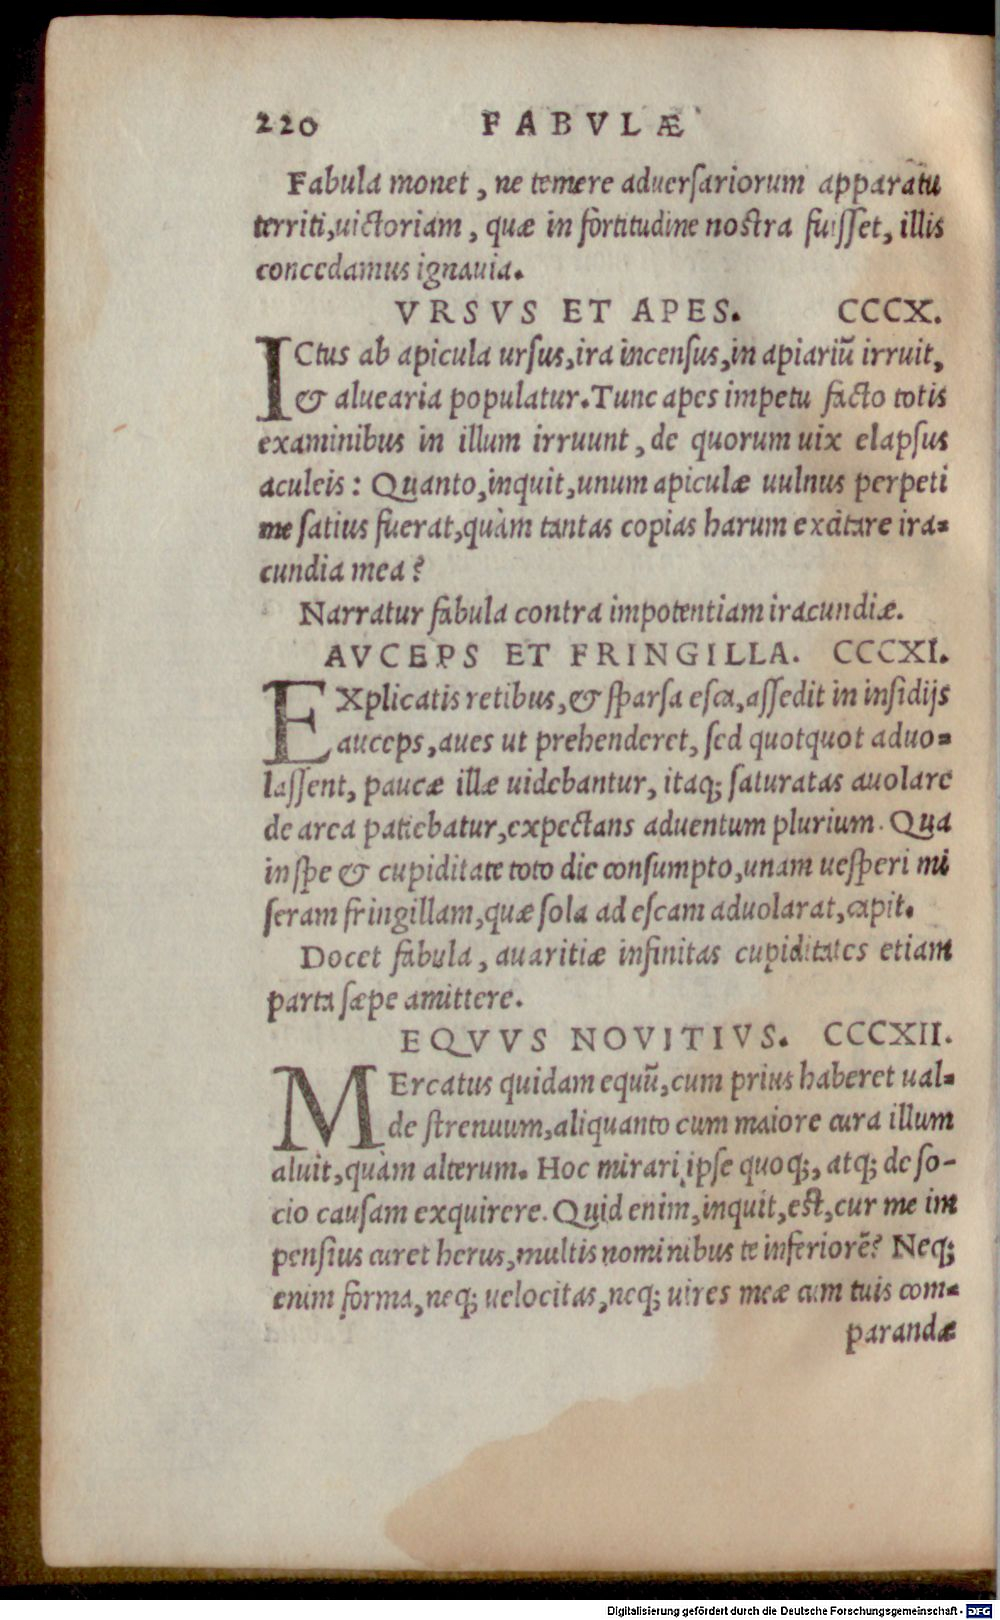 220 FABVLÆ
Fabula monet, ne temere aduersariorum apparatu
territi, uictoriam, quæ in fortitudine nostra fuisset, illis
concedamus ignauia.
VRSVS ET APES. CCCX.
ICtus ab apicula ursus, ira incensus, in apiariū irruit,
& aluearia populatur. Tunc apes impetu facto totis
examinibus in illum irruunt, de quorum uix elapsus
aculeis: Quanto, inquit, unum apiculæ uulnus perpeti
me satius fuerat, quàm tantas copias harum excitare ira-
cundia mea?
Narratur fabula contra impotentiam iracundiæ.
AVCEPS ET FRINGILLA. CCCXI.
EXplicatis retibus, & sparsa esca, assedit in insidijs
auceps, aues ut prehenderet, sed quotquot aduo-
lassent, paucæ illæ uidebantur, itaq; saturatas auolare
de area patiebatur, expectans aduentum plurium. Qua
in spe & cupiditate toto die consumpto, unam uesperi mi
seram fringillam, quæ sola ad escam aduolarat, capit.
Docet fabula, auaritiæ infinitas cupiditates etiam
parta sæpe amittere.
EQVVS NOVITIVS. CCCXII.
MErcatus quidam equū, cum prius haberet ual-
de strenuum, aliquanto cum maiore cura illum
aluit, quàm alterum. Hoc mirari ipse quoq;, atq; de so-
cio causam exquirere. Quid enim, inquit, est, cur me im
pensius curet herus, multis nominibus te inferiorē? Neq;
enim forma, neq; uelocitas, neq; uires meæ cum tuis com-
parandæ
Digitalisierung gefördert durch die Deutsche Forschungsgemeinschaft - DFG